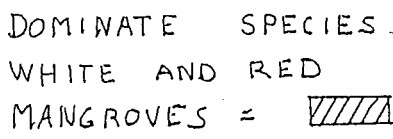 DOMINATE SPECIES.
WHITE AND RED
MANGROVES =